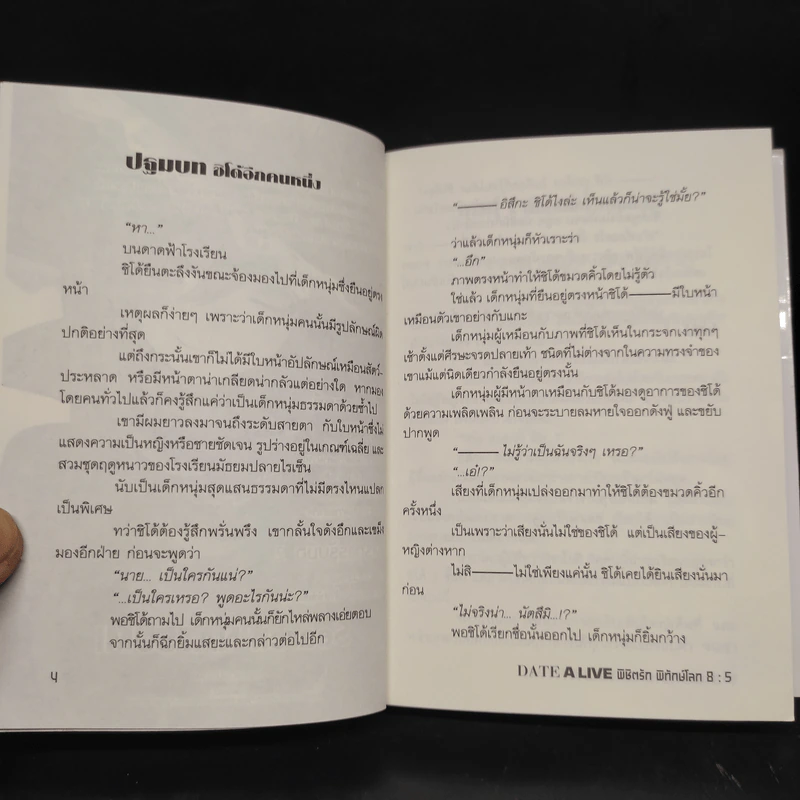 ปฐมบท ชิโด้อีกคนหนึ่ง
“หา...”
บนดาดฟ้าโรงเรียน
ชิโด้ยืนตะลึงงันขณะจ้องมองไปที่เด็กหนุ่มซึ่งยืนอยู่ตรง
หน้า
เหตุผลก็ง่ายๆ เพราะว่าเด็กหนุ่มคนนั้นมีรูปลักษณ์ผิด
ปกติอย่างที่สุด
แต่ถึงกระนั้นเขาก็ไม่ได้มีใบหน้าอัปลักษณ์เหมือนสัตว์-
ประหลาด หรือมีหน้าตาน่าเกลียดน่ากลัวแต่อย่างใด หากมอง
โดยคนทั่วไปแล้วก็คงรู้สึกแค่ว่าเป็นเด็กหนุ่มธรรมดาด้วยซ้ำไป
เขามีผมยาวลงมาจนถึงระดับสายตา กับใบหน้าซึ่งไม่
แสดงความเป็นหญิงหรือชายชัดเจน รูปร่างอยู่ในเกณฑ์เฉลี่ย และ
สวมชุดฤดูหนาวของโรงเรียนมัธยมปลายไรเซ็น
นับเป็นเด็กหนุ่มสุดแสนธรรมดาที่ไม่มีตรงไหนแปลก
เป็นพิเศษ
ทว่าชิโด้ต้องรู้สึกพรั่นพรึง เขากลั้นใจดังอึกและเขม็ง
มองอีกฝ่าย ก่อนจะพูดว่า
“นาย... เป็นใครกันแน่?”
“...เป็นใครเหรอ? พูดอะไรกันน่ะ?”
พอชิโด้ถามไป เด็กหนุ่มคนนั้นก็ยักไหล่พลางเอ่ยตอบ
จากนั้นก็ฉีกยิ้มแสยะและกล่าวต่อไปอีก
๔
“———อิสึกะ ชิโด้ไงล่ะ เห็นแล้วก็น่าจะรู้ใช่มั้ย?”
ว่าแล้วเด็กหนุ่มก็หัวเราะร่า
“...อึก”
ภาพตรงหน้าทำให้ชิโด้ขมวดคิ้วโดยไม่รู้ตัว
ใช่แล้ว เด็กหนุ่มที่ยืนอยู่ตรงหน้าชิโด้———มีใบหน้า
เหมือนตัวเขาอย่างกับแกะ
เด็กหนุ่มผู้เหมือนกับภาพที่ชิโด้เห็นในกระจกเงาทุกๆ
เช้าตั้งแต่ศีรษะจรดปลายเท้า ชนิดที่ไม่ต่างจากในความทรงจำของ
เขาแม้แต่นิดเดียวกำลังยืนอยู่ตรงนั้น
เด็กหนุ่มผู้มีหน้าตาเหมือนกับชิโด้มองดูอาการของชิโด้
ด้วยความเพลิดเพลิน ก่อนจะระบายลมหายใจออกดังฟู่ และขยับ
ปากพูด
“———ไม่รู้ว่าเป็นฉันจริงๆ เหรอ?”
“...เอ๋!?”
เสียงที่เด็กหนุ่มเปล่งออกมาทำให้ชิโด้ต้องขมวดคิ้วอีก
ครั้งหนึ่ง
เป็นเพราะว่าเสียงนั่นไม่ใช่ของชิโด้ แต่เป็นเสียงของผู้-
หญิงต่างหาก
ไม่สิ———ไม่ใช่เพียงแค่นั้น ชิโด้เคยได้ยินเสียงนั่นมา
ก่อน
“ไม่จริงน่า... นัตสึมิ...!?”
พอชิโด้เรียกชื่อนั้นออกไป เด็กหนุ่มก็ยิ้มกว้าง
DATE A LIVE พิชิตรัก พิทักษ์โลก 8 : 5